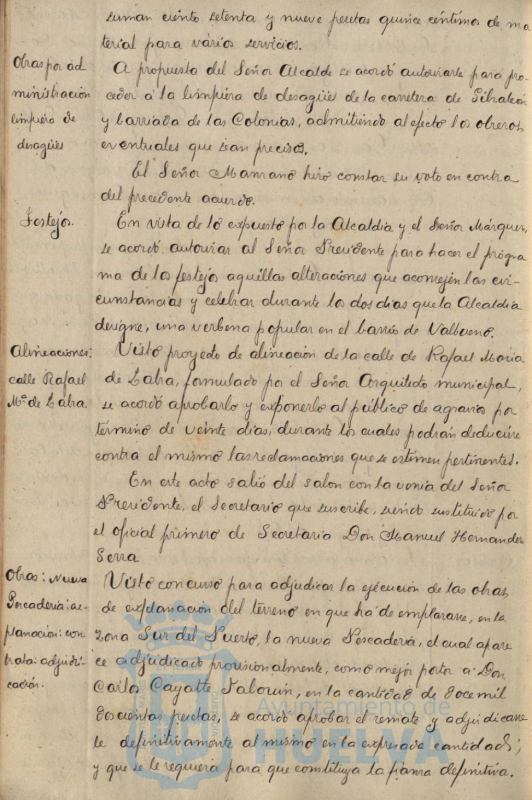 suman ciento setenta y nueve pesetas quince céntimos de ma
terial para varios servicios.
Obras por ad
ministración
limpieza de
desagües
A propuesta del Señor Alcalde se acordó autorizarle para pro-
ceder a la limpieza de desagües de la carretera de Gibraleón
y barriada de las Colonias, admitiendo al efecto los obreros
eventuales que sean precisos.
El Señor Manzano hizo constar su voto en contra
del precedente acuerdo.
Festejos.
En vista de lo expuesto por la Alcaldía y el Señor Márquez,
se acordó autorizar al Señor Presidente para hacer el progra
ma de los festejos aquellas alteraciones que aconsejen las cir-
cunstancias y celebrar durante los dos dias que la Alcaldía
designe, una verbena popular en el barrio de Valbueno.
Alineaciones:
calle Rafael
Mª de Labra
Visto proyecto de alineación de la calle de Rafael María
de Labra, formulado por el Señor Arquitecto municipal,
se acordó aprobarlo y exponerlo al público de agravios por
término de veinte dias, durante los cuales podrán deducirse
contra el mismo las reclamaciones que se estimen pertinentes.
En este acto salió del salon con la venia del Señor
Presidente, el Secretario que suscribe, siendo sustituido por
el oficial primero de Secretaria Don Manuel Hernandez
Serra
Obras: Nueva
Pescadería: ex-
planación: con
trata: adjudi-
cación.
Visto concurso para adjudicar la ejecución de las obras
de explanación del terreno en que ha de emplazarse, en la
zona Sur del Puerto, la nueva Pescadería, el cual apare
ce adjudicado provisionalmente, como mejor postor a Don
Carlos Cayatte Tabouin, en la cantidad de doce mil
doscientas pesetas, se acordó aprobar el remate y adjudicarse
le definitivamente al mismo en la expresada cantidad;
y que se le requiera para que constituya la fianza definitiva.
Ayuntamiento de
HUELVA